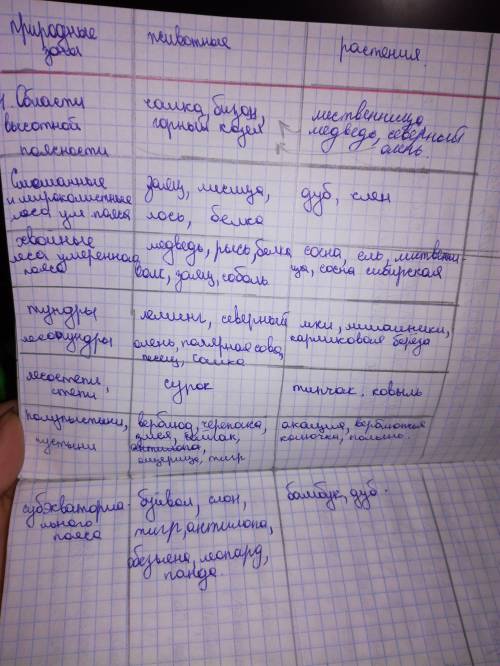 природные животные растения.
зоны
1. Области чайка, бизон, лиственница
высотной горный козёл медведь, северный
поясности олень.
Смешанные заяц, лисица, дуб, клен
и широколиственные
леса ум. пояса лось, белка
хвойные медведь, рысь, белка сосна, ель, листвени-
леса умеренного
пояса волк, заяц, соболь ца, сосна сибирская
тундры лемминг, северный мхи, лишайники,
лесотундры олень, полярная сова, карликовая береза
песец, чайка
лесостепи, сурок типчак, ковыль
степи
полупустыни, верблюд, черепаха, акация, верблюжья
пустыни змея, сайгак, колючка, полынь.
антилопа,
ящерица, тигр
субэкваториа- буйвол, слон, бамбук, дуб.
льного тигр, антилопа,
пояса
обезьяна, леопард,
панда.